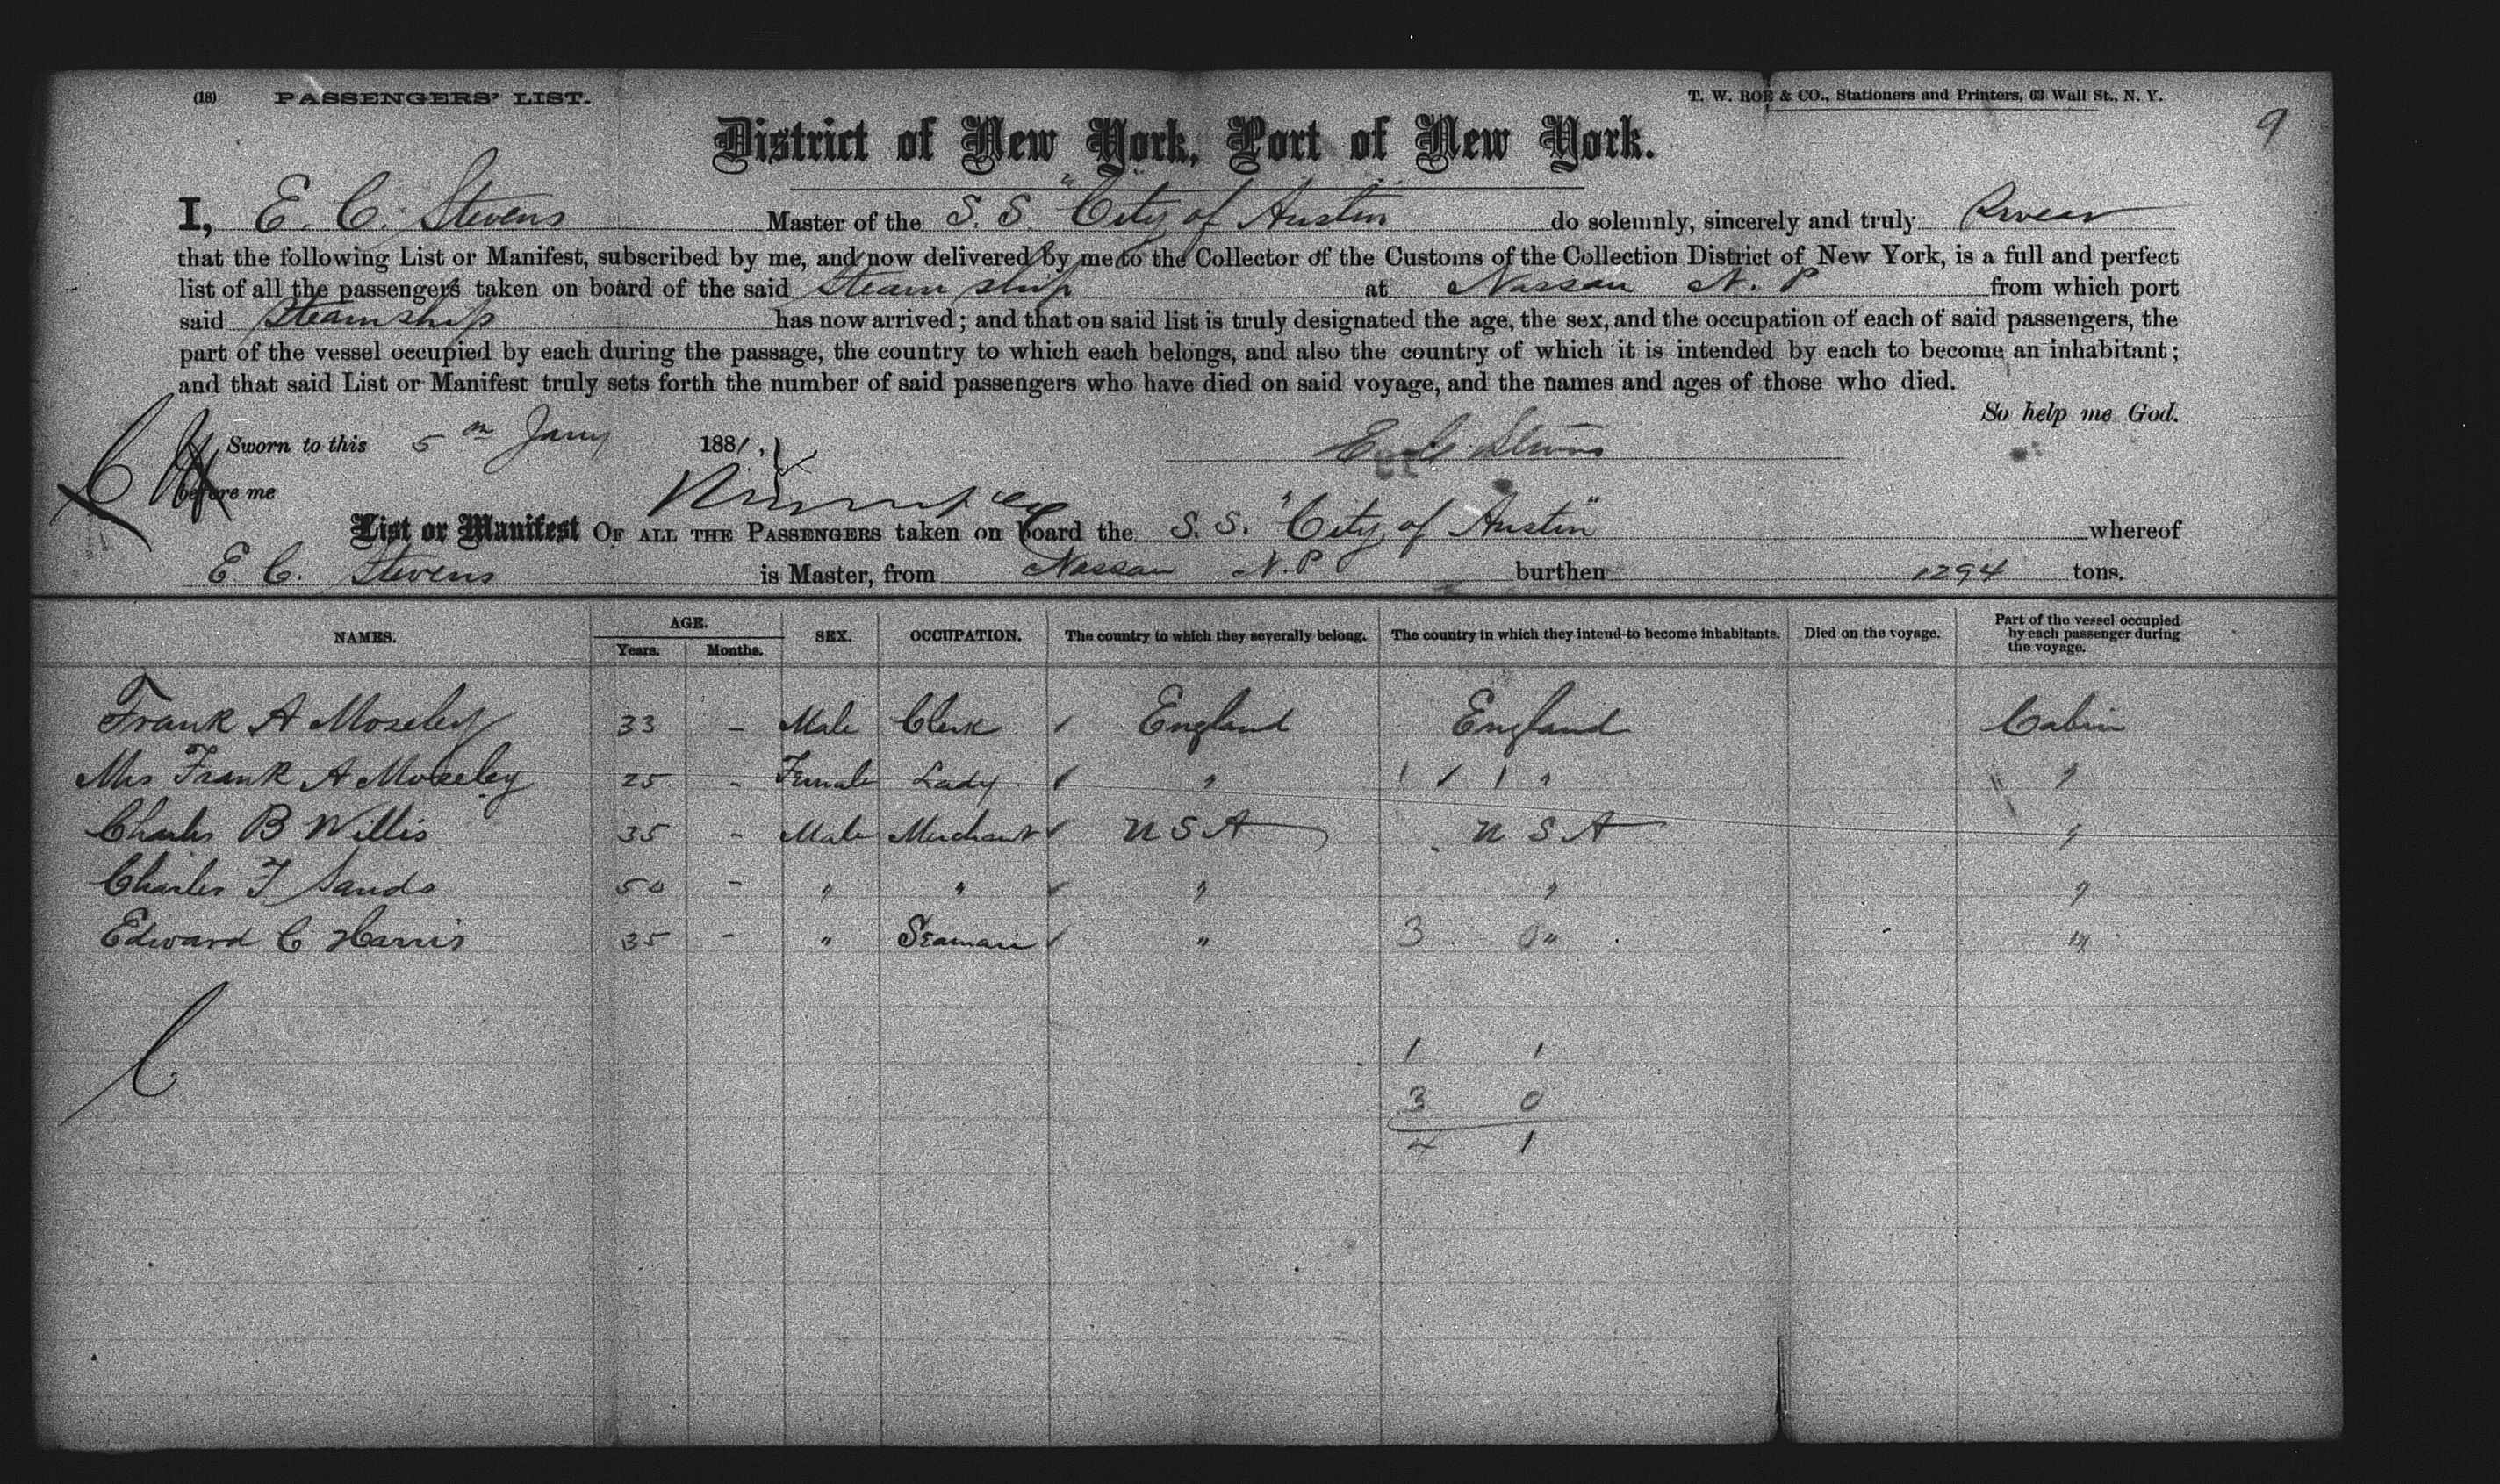 (18) PASSENGERS' LIST. T. W. ROE & CO., Stationers and Printers, 63 Wall St., N. Y.
9
District of New York, Port of New York.
I, E. C. Stevens Master of the S. S. "City of Austin do solemnly, sincerely and truly Swear
that the following List or Manifest, subscribed by me, and now delivered by me to the Collector of the Customs of the Collection District of New York, is a full and perfect
list of all the passengers taken on board of the said Steam ship at Nassau N. P from which port
said Steamship has now arrived; and that on said list is truly designated the age, the sex, and the occupation of each of said passengers, the
part of the vessel occupied by each during the passage, the country to which each belongs, and also the country of which it is intended by each to become an inhabitant;
and that said List or Manifest truly sets forth the number of said passengers who have died on said voyage, and the names and ages of those who died.
So help me God.
Sworn to this 5 Jany 1881, E. C. Stevens
before me
List or Manifest OF ALL THE PASSENGERS taken on board the S. S. "City of Austin" whereof
E C. Stevens is Master, from Nassau N. P burthen 1294 tons.
NAMES. AGE. Years. Months. SEX. OCCUPATION. The country to which they severally belong. The country in which they intend to become inhabitants. Died on the voyage. Part of the vessel occupied by each passenger during the voyage.
Frank A Moseley 33 - Male Clerk England England Cabin
Mrs Frank A Moseley 25 - Female Lady " 1 1 1 " "
Charles B Willis 35 - Male Merchant U S A U S A "
Charles F Sands 50 - " " " " "
Edward C Harris 35 - " Seaman " 3 0 " "
1 1
3 0
4 1